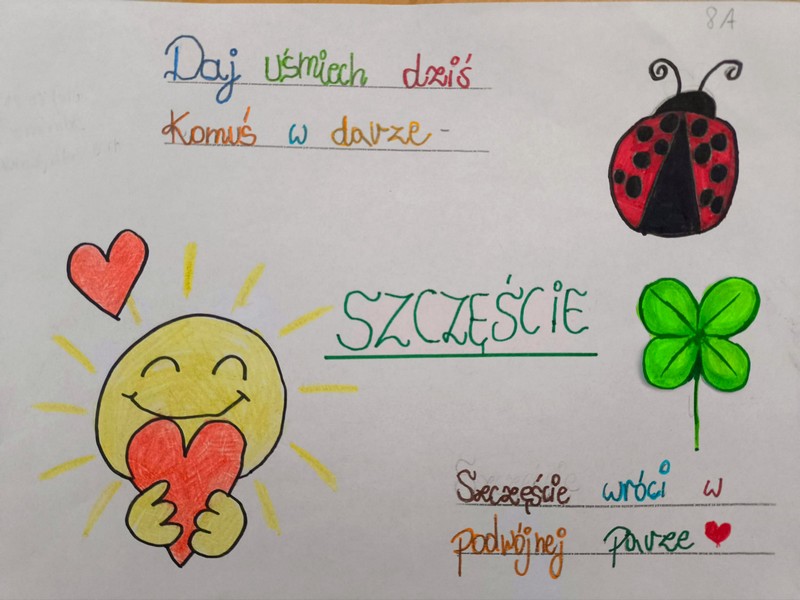 8A
Daj uśmiech dziś
Komuś w darze -
SZCZĘŚCIE
Szczęście wróci w
podwójnej parze